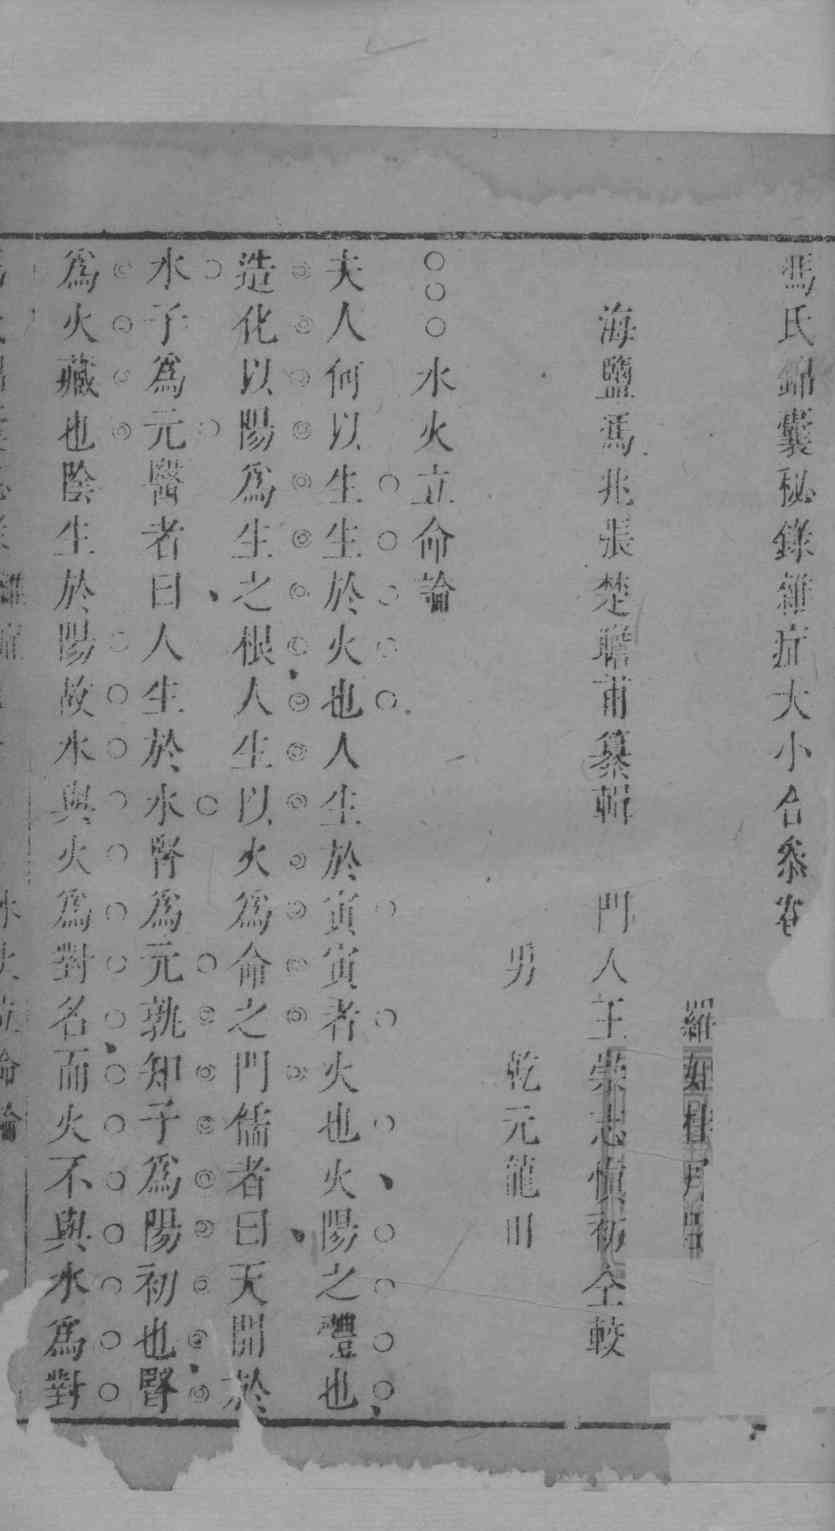 馮氏錦囊秘錄雜症大小合叅卷
羅如桂丹臣
海鹽馮兆張楚瞻甫纂輯　門人王崇志慎初仝較
男　乾元龍田
○○○水火立命論
夫人何以生生於火也人生於寅寅者火也火陽之體也
造化以陽為生之根人生以火為命之門儒者曰天開於
水子為元醫者曰人生於水腎為元孰知子為陽初也腎
為火藏也陰生於陽故水與火為對名而火不與水為對
水火立命論